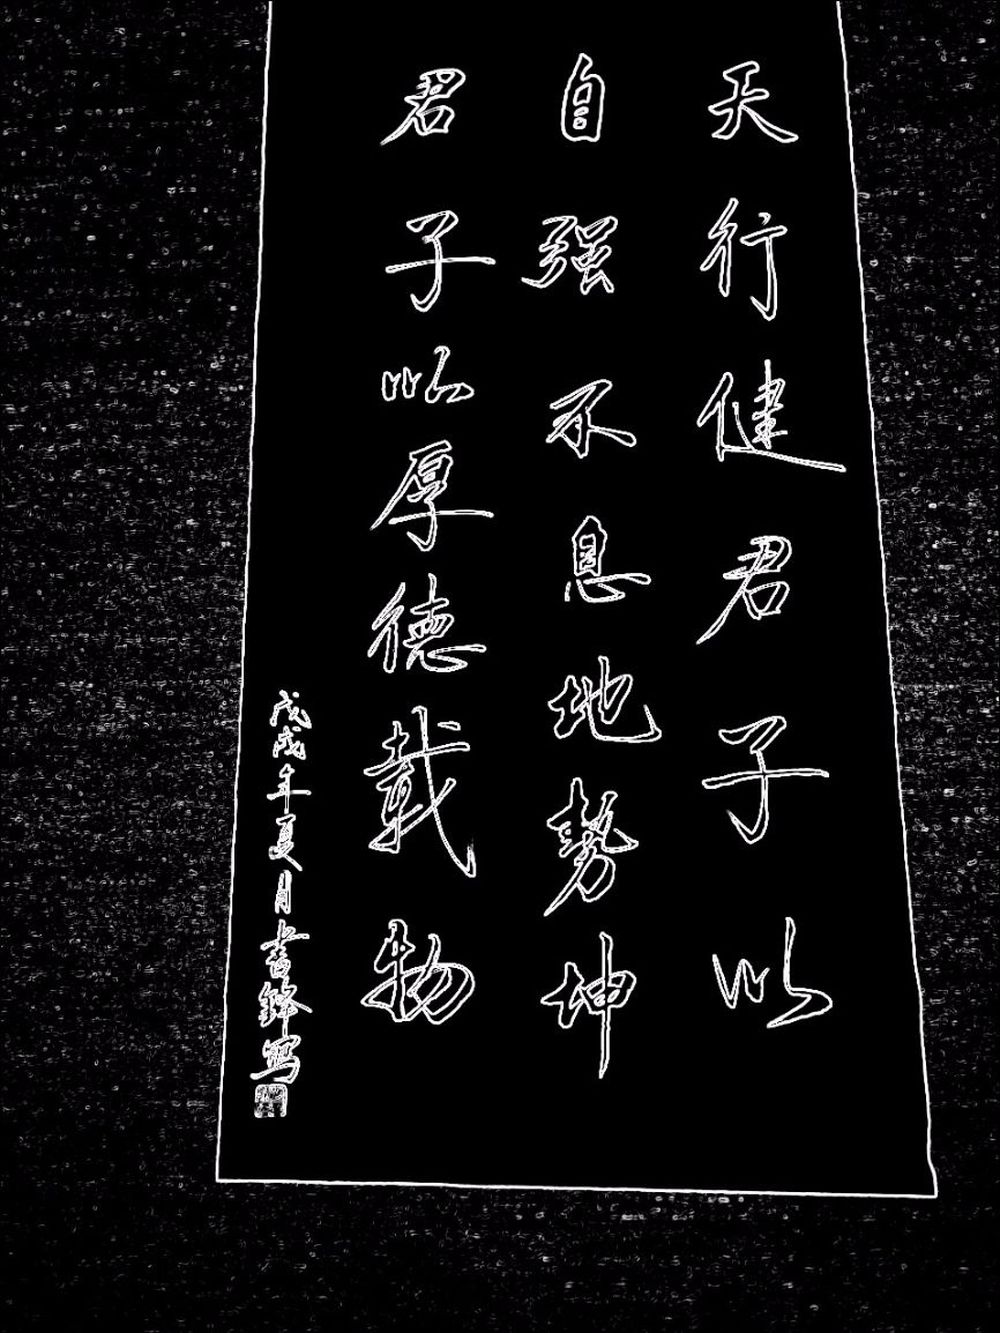 天行健君子以
自强不息地势坤
君子以厚德载物
戊戌年夏月书锋写